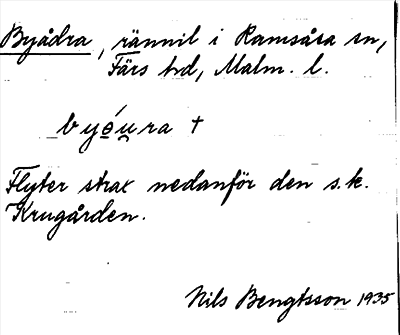 Byådra, rännil i Ramsåsa sn,
Färs hd, Malm. l.
byó̲u̯ra †
Flyter strax nedanför den s.k.
Krugården.
Nils Bengtsson 1935